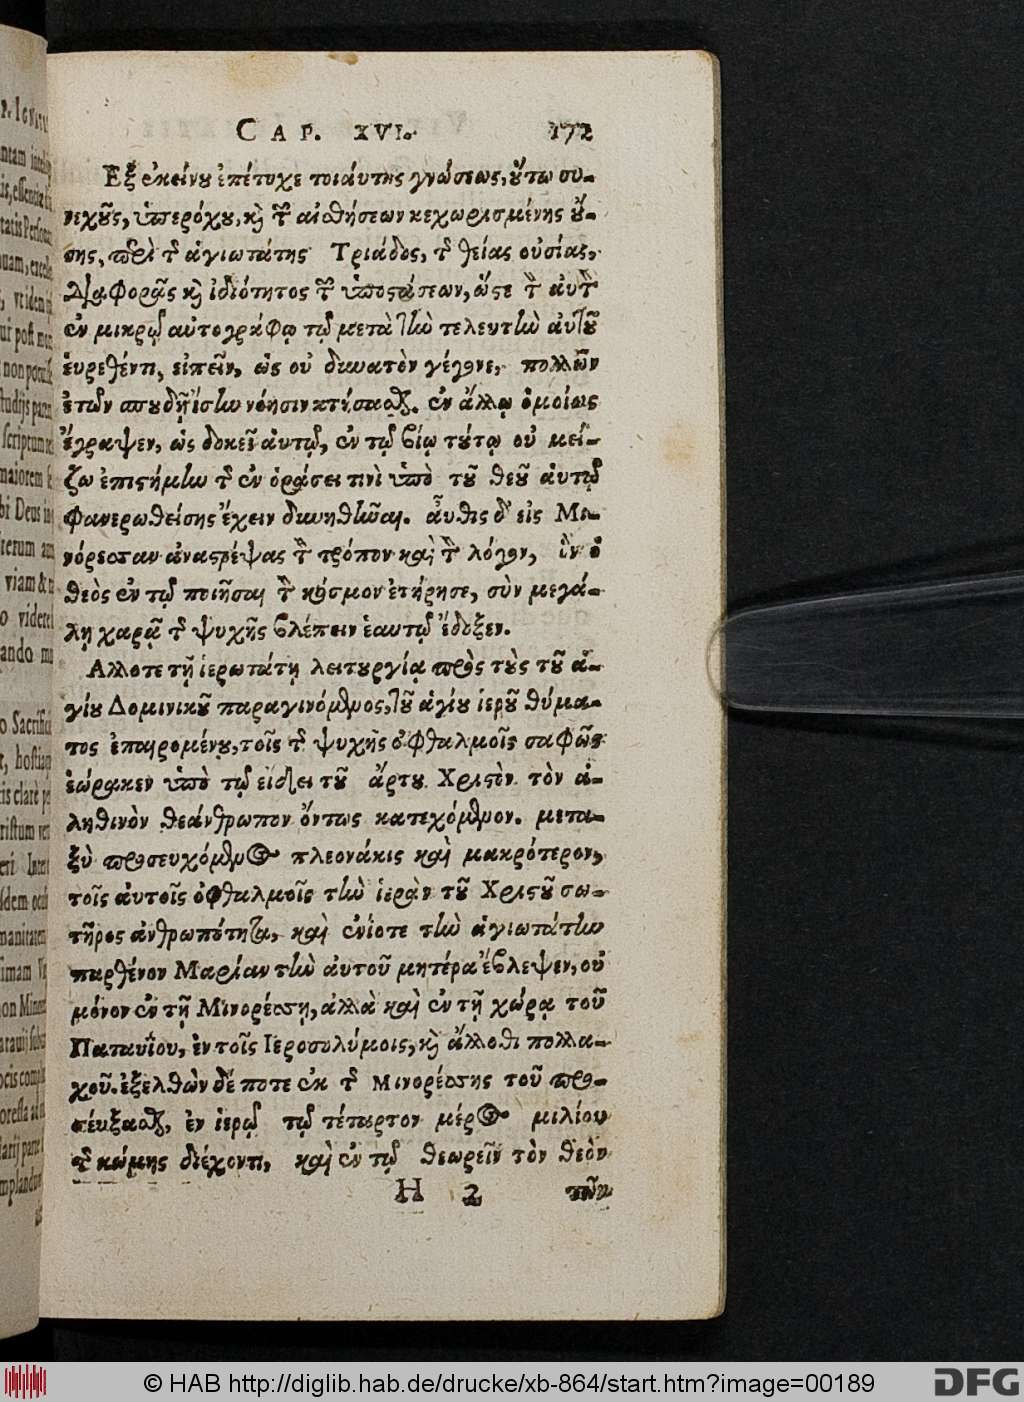 CAP. XVI. 172
Ἐξ ἐκείνου ἐπέτυχε τοιάυτης γνώσεως, ὅυτω συ-
νεχοῦς, ὑπερόχου, καὶ τῶν αἰσθήσεων κεχωρισμένης ὄυ-
σης, περὶ τῆς ἁγιωτάτης Τριάδος, τῆς θείας οὐσίας,
Διαφορᾶς καὶ ἰδιότητος τῶν ὑποστάσεων, ὥστε τὸν αὐτὸν
ἐν μικρῷ αὐτογράφῳ τῷ μετὰ τὴν τελευτὴν αὐτοῦ
ἑυρεθέντι, εἰπεῖν, ὡς οὐ δυνατὸν γέγονε, πολλῶν
ἐτῶν σπουδῇ ἴσην νόησιν κτήσασθαι. ἐν ἄλλῳ ὁμοίως
ἔγραψεν, ὡς δοκεῖ ἀυτῷ, ἐν τῷ βίῳ τόυτῳ οὐ μεί-
ζω ἐπιστήμην τῆς ἐν ὁράσει τινὶ ὑπὸ τοῦ θεοῦ ἀυτῷ
Φανερωθείσης ἔχειν δυνηθῆναι. ἆυθις δ' εἰς Μι-
νόρεσσαν ἀναστρέψας τὸν τρόπον καὶ τὸν λόγον, ὃν ὁ
θεὸς ἐν τῷ ποιῆσαι τὸν κόσμον ἐτήρησε, σὺν μεγά-
λῃ χαρᾷ τῆς ψυχῆς βλέπειν ἑαυτῷ ἔδοξεν.
Αλλοτε τῇ ἱερωτάτῃ λειτυργίᾳ πρὸς τοὺς τοῦ ἁ-
γίου Δομινικοῦ παραγινόμενος, τοῦ ἁγίου ἱεροῦ θύμα-
τος ἐπαιρομένου, τοῖς τῆς ψυχῆς ὀφθαλμοῖς σαφῶς
ἑώρακεν ὑπὸ τῷ εἴδει τοῦ ἄρτου Χριστὸν τὸν ἀ-
ληθινὸν θεάνθρωπον ὄντως κατεχόμενον. μετα-
ξὺ προσευχόμενος πλεονάκις καὶ μακρότερον,
τοῖς ἀυτοῖς ὀφθαλμοῖς τὴν ἱερὰν τοῦ Χριστοῦ σω-
τῆρος ἀνθρωπότητα, καὶ ἐνίοτε τὴν ἁγιωτάτην
παρθένον Μαρίαν τὴν ἀυτοῦ μητέρα ἔβλεψεν, οὐ
μόνον ἐν τῇ Μινορέσσῃ, ἀλλὰ καὶ ἐν τῇ χώρᾳ τοῦ
Παταυΐου, ἐν τοῖς Ἱεροσολύμοις, καὶ ἄλλοθι πολλα-
χοῦ. ἐξελθὼν δέ ποτε ἐκ τῆς Μινορέσσης τοῦ προ-
σέυξασθαι, ἐν ἱερῷ τῷ τέταρτον μέρος μιλίου
τῆς κώμης διέχοντι, καὶ ἐν τῷ θεωρεῖν τὸν θεὸν
H 2 τῶν
© HAB http://diglib.hab.de/drucke/xb-864/start.htm?image=00189
DFG